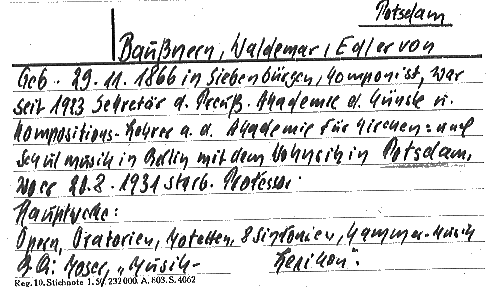 Potsdam
Baußnern, Waldemar, Edler von
Geb. 29.11.1866 in Siebenbürgen, Komponist, war
seit 1923 Sekretär d. Preuß. Akademie d. Künste u.
Kompositions-Lehrer a. d. Akademie für Kirchen= und
Schulmusik in Berlin mit dem Wohnsitz in Potsdam,
wo er 20.8.1931 starb. Professor.
Hauptwerke:
Opern, Oratorien, Motetten, 8 Sinfonien, Kammer-Musik
Moser, „Musik- Lexikon".
Reg. 10. Stichnote 1. 232000. A. 803. S. 4062